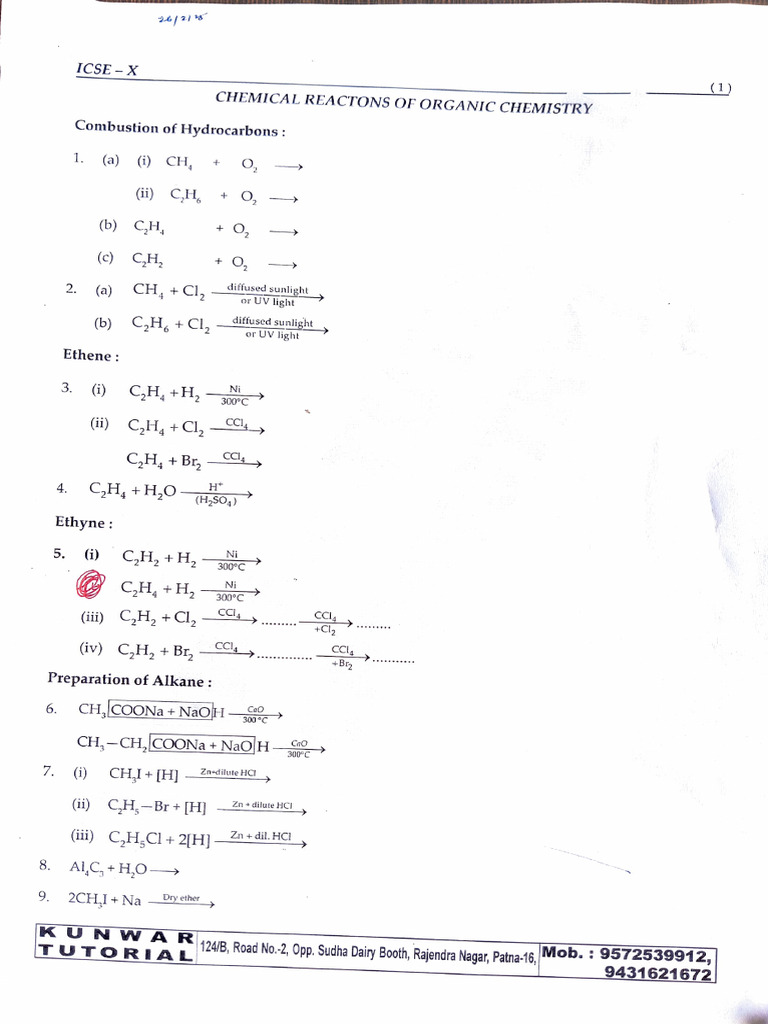 26/2/25
ICSE – X
(1)
CHEMICAL REACTONS OF ORGANIC CHEMISTRY
Combustion of Hydrocarbons :
1. (a) (i) CH₄ + O₂ ⟶
(ii) C₂H₆ + O₂ ⟶
(b) C₂H₄ + O₂ ⟶
(c) C₂H₂ + O₂ ⟶
2. (a) CH₄ + Cl₂ diffused sunlight ⟶ or UV light
(b) C₂H₆ + Cl₂ diffused sunlight ⟶ or UV light
Ethene :
3. (i) C₂H₄ + H₂ Ni ⟶ 300°C
(ii) C₂H₄ + Cl₂ CCl₄ ⟶
C₂H₄ + Br₂ CCl₄ ⟶
4. C₂H₄ + H₂O H⁺ ⟶ (H₂SO₄)
Ethyne :
5. (i) C₂H₂ + H₂ Ni ⟶ 300°C
C₂H₄ + H₂ Ni ⟶ 300°C
(iii) C₂H₂ + Cl₂ CCl₄ ⟶ ......... CCl₄ ⟶ +Cl₂ .........
(iv) C₂H₂ + Br₂ CCl₄ ⟶ ............. CCl₄ ⟶ +Br₂ ...........
Preparation of Alkane :
6. CH₃ COONa + NaO H CaO ⟶ 300°C
CH₃ – CH₂ COONa + NaO H CaO ⟶ 300°C
7. (i) CH₃I + [H] Zn+dilute HCl ⟶
(ii) C₂H₅ – Br + [H] Zn + dilute HCl ⟶
(iii) C₂H₅Cl + 2[H] Zn + dil. HCl ⟶
8. Al₄C₃ + H₂O ⟶
9. 2CH₃I + Na Dry ether ⟶
KUNWAR TUTORIAL
124/B, Road No.-2, Opp. Sudha Dairy Booth, Rajendra Nagar, Patna-16,
Mob. : 9572539912,
9431621672